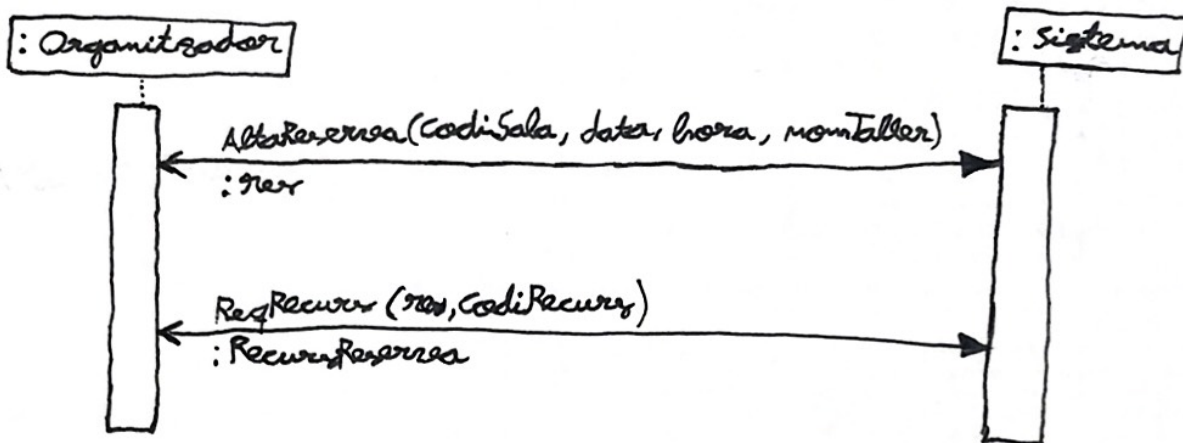 : Organitzador
: Sistema
AltaReserva(codiSala, data, hora, nomTaller)
: res
ReqRecurs (res, codiRecurs)
: RecursReserva